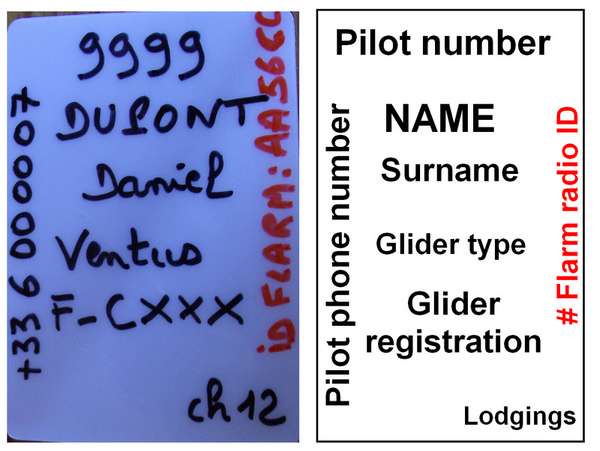 9999
DUPONT
Daniel
Ventus
F-CXXX
ch 12
+33 6 00 00 07
iD FLARM:
Pilot number
NAME
Surname
Glider type
Glider
registration
Lodgings
Pilot phone number
# Flarm radio ID